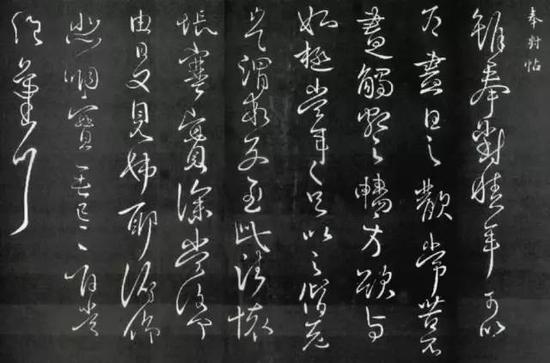 奉對帖
雖奉對積年可以
為盡日之歡常苦不
盡觸額之暢方欲与
姊極當年之匹以之偕老
豈謂乖別至此諸懷
悵塞實深當復何
由日夕見姊耶俯仰
悲咽實無已已惟當
絕氣耳